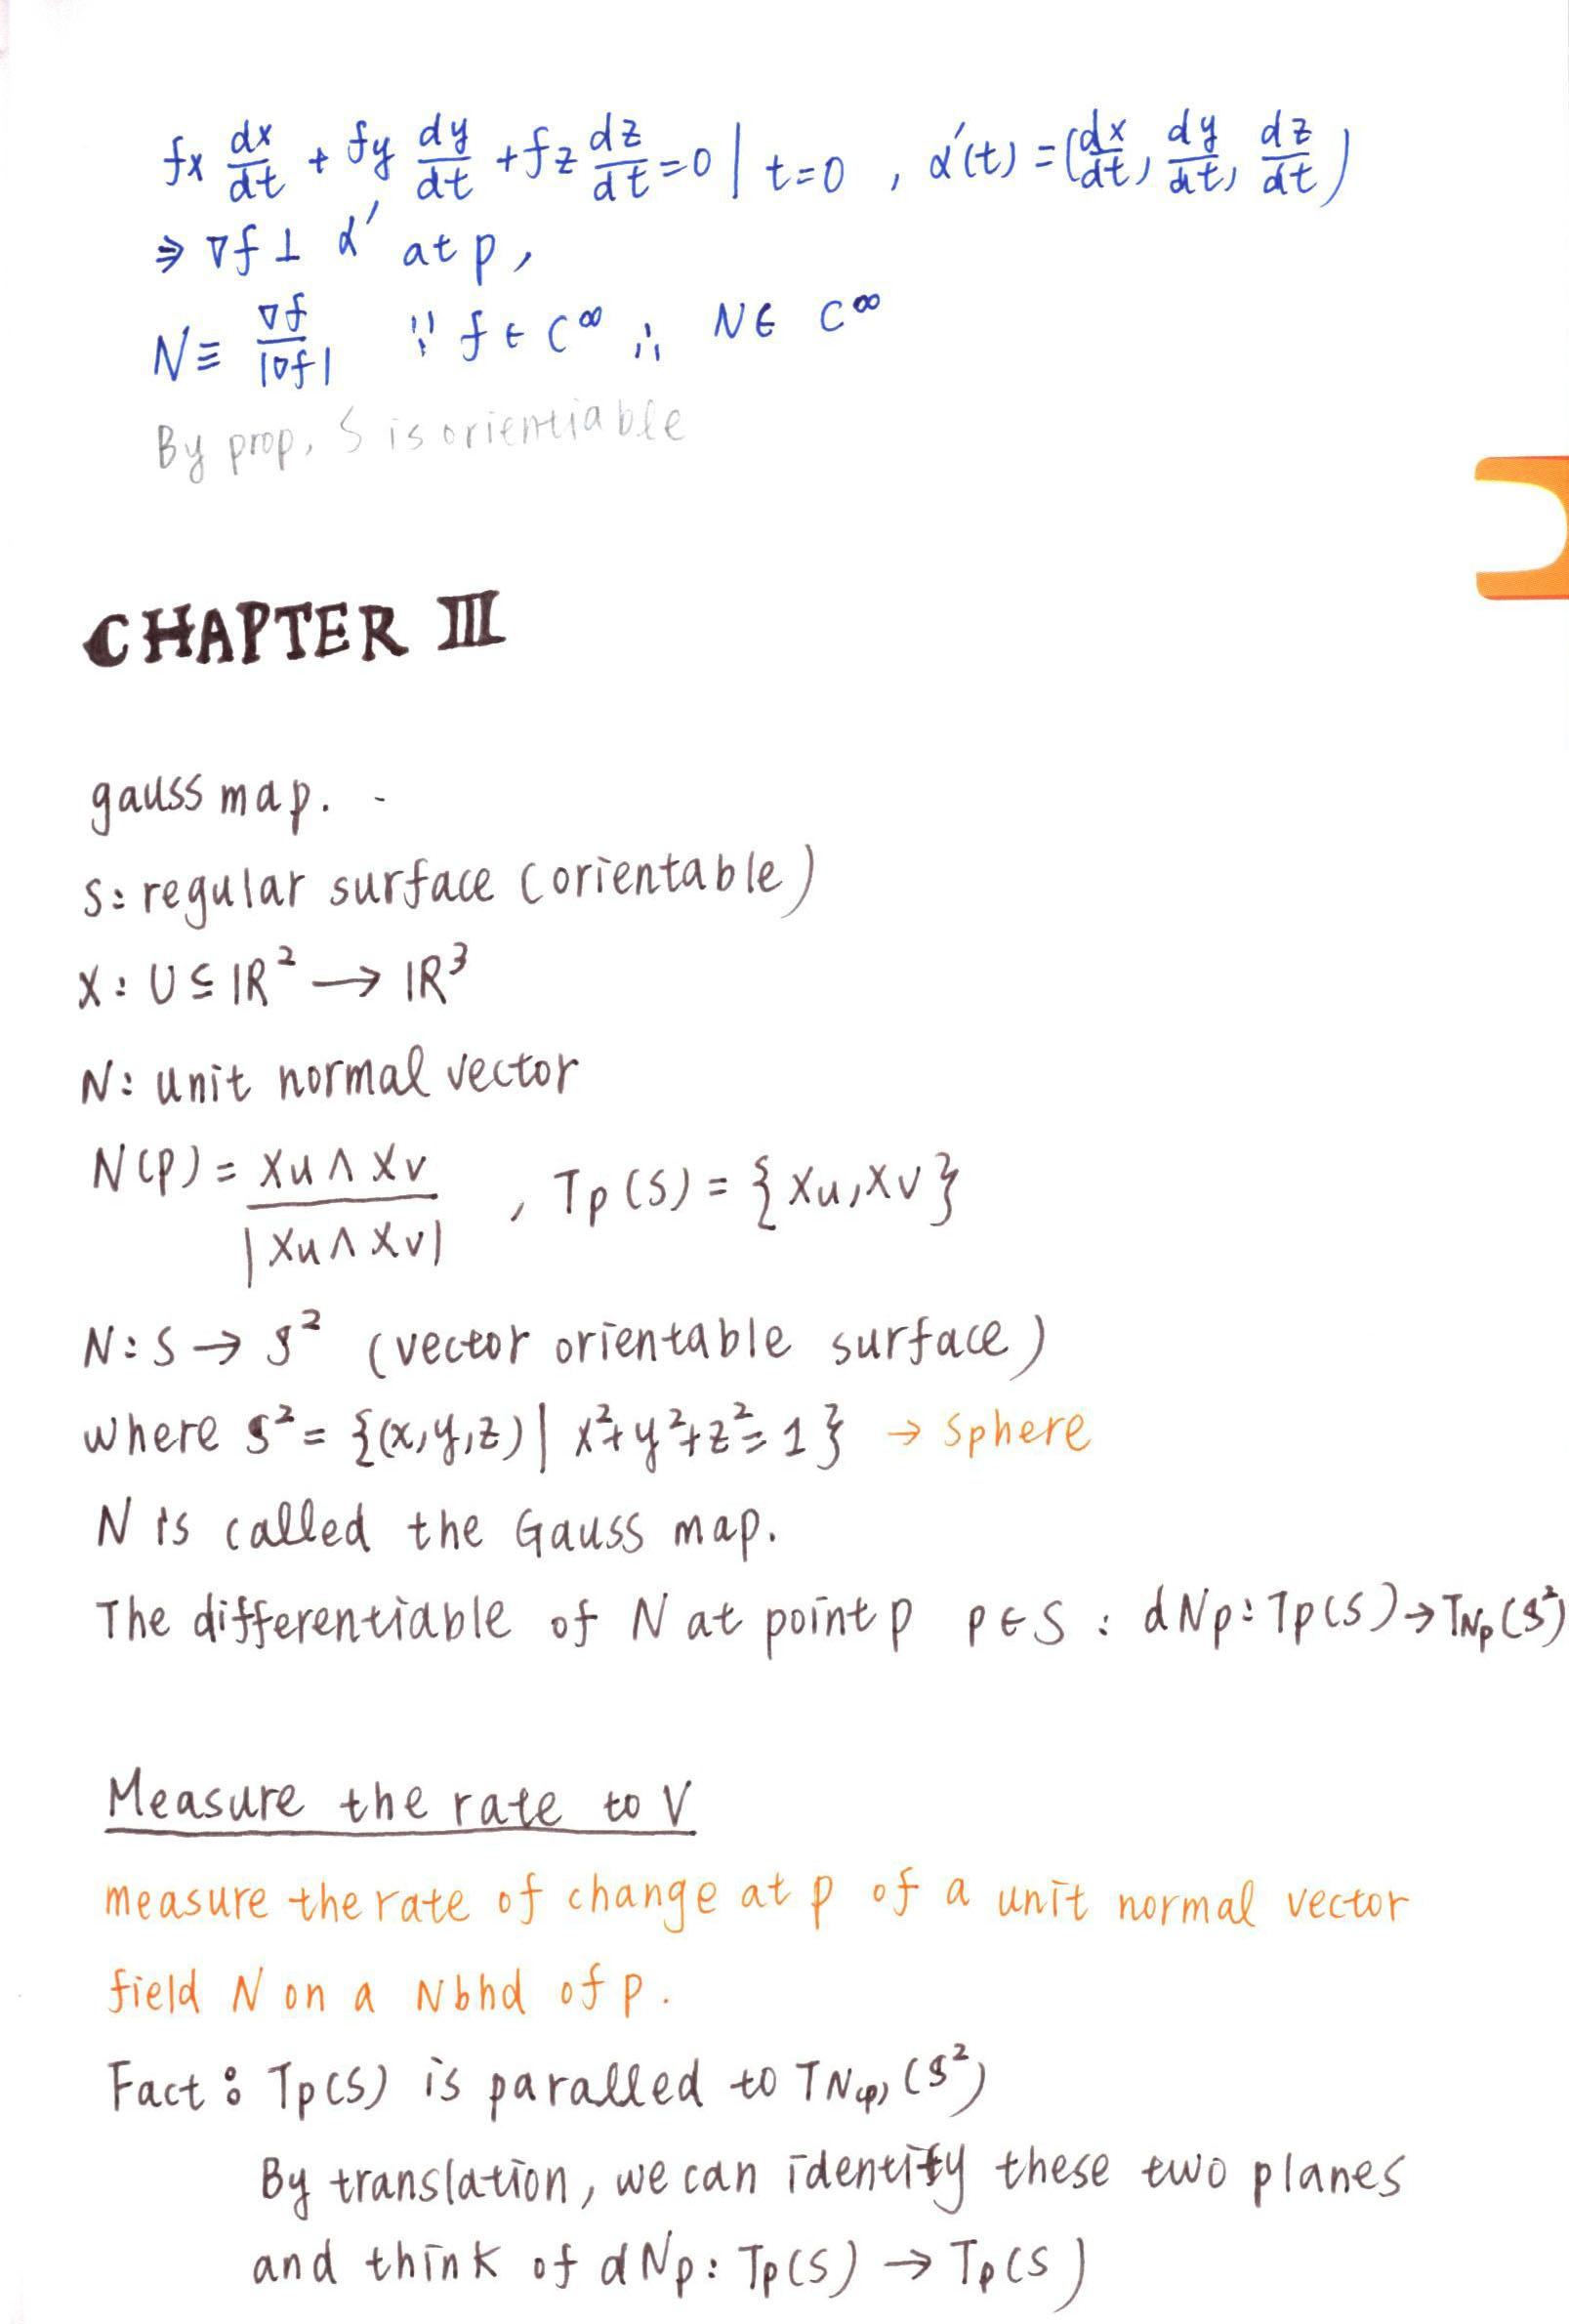 fx dx/dt + fy dy/dt + fz dz/dt = 0 | t=0 , α'(t) = (dx/dt, dy/dt, dz/dt)
⇒ ∇f ⊥ α' at p,
N ≡ ∇f/|∇f| ∵ f ∈ C^∞ ∴ N ∈ C^∞
By prop, S is orientiable
CHAPTER III
gauss map. -
S: regular surface (orientable)
X: U ⊆ ℝ² → ℝ³
N: unit normal vector
N(p) = Xu ∧ Xv / |Xu ∧ Xv| , Tp(S) = {Xu, Xv}
N: S → S² (vector orientable surface)
where S² = {(x,y,z) | x²+y²+z²=1} → sphere
N is called the Gauss map.
The differentiable of N at point p p ∈ S : dNp: Tp(S) → TNp(S²)
Measure the rate to V
measure the rate of change at p of a unit normal vector
field N on a Nbhd of p.
Fact: Tp(S) is paralled to TN(p)(S²)
By translation, we can identity these two planes
and think of dNp: Tp(S) → Tp(S)